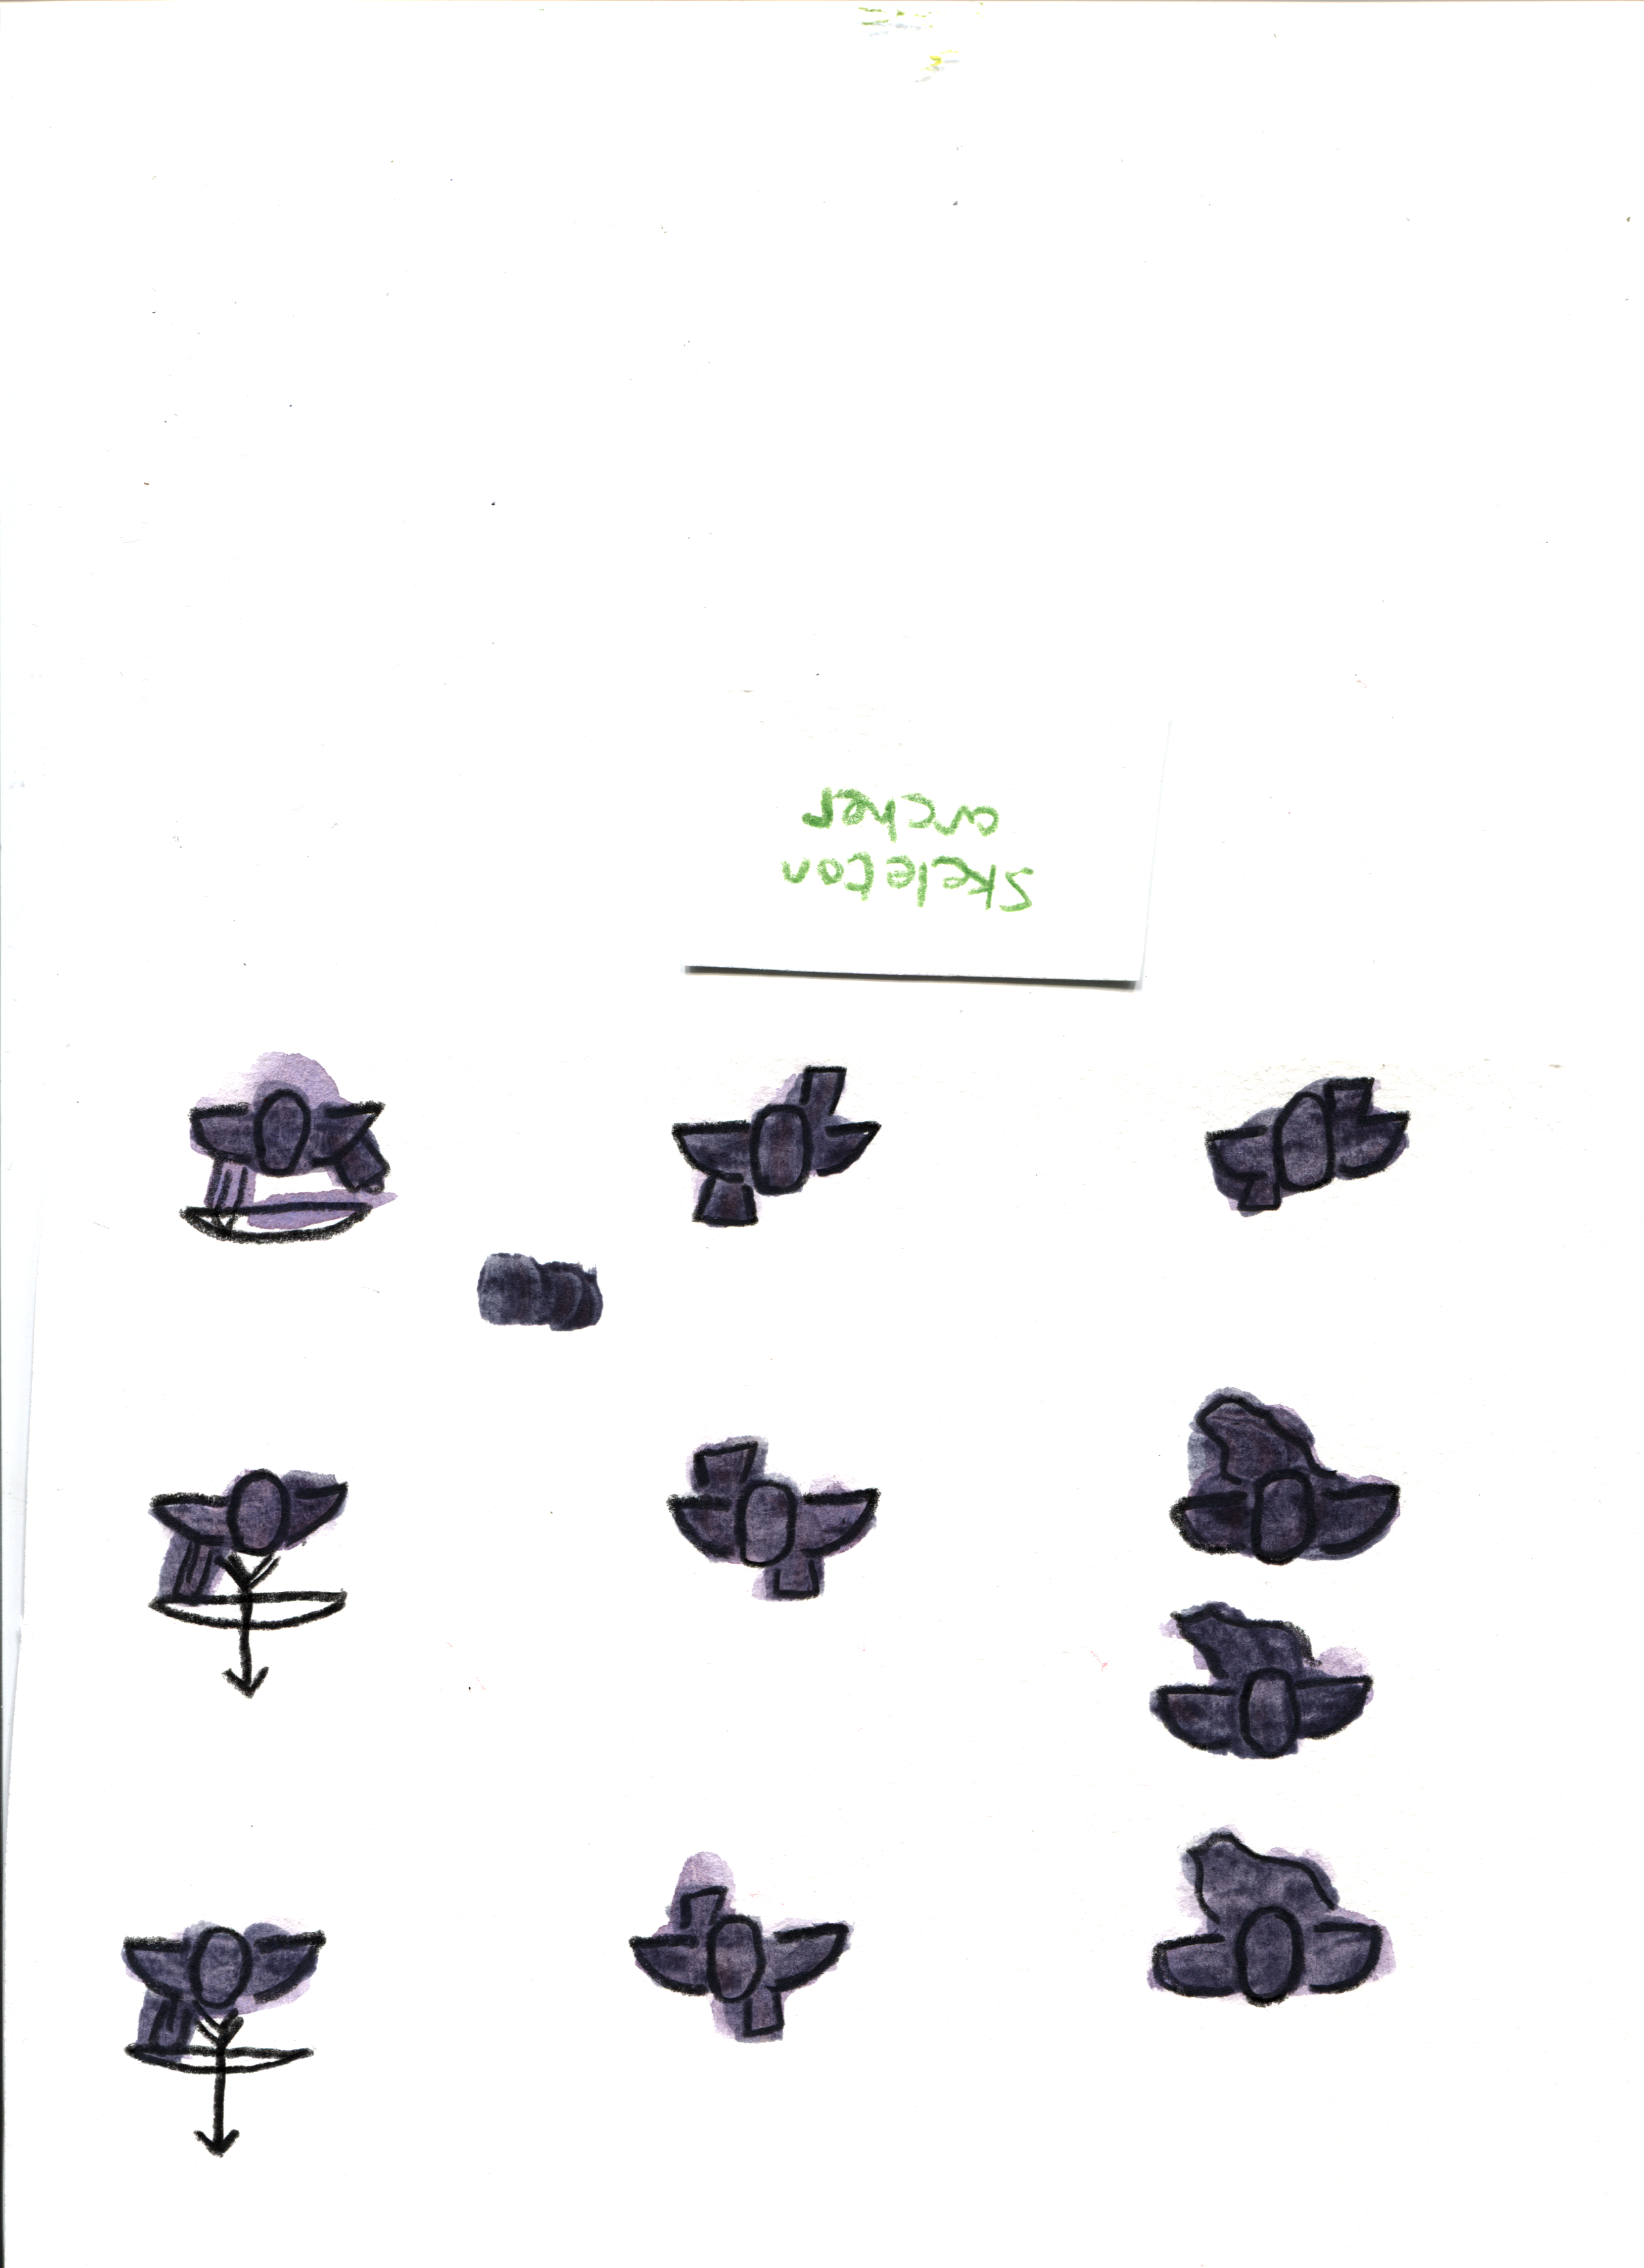 skeleton
archer